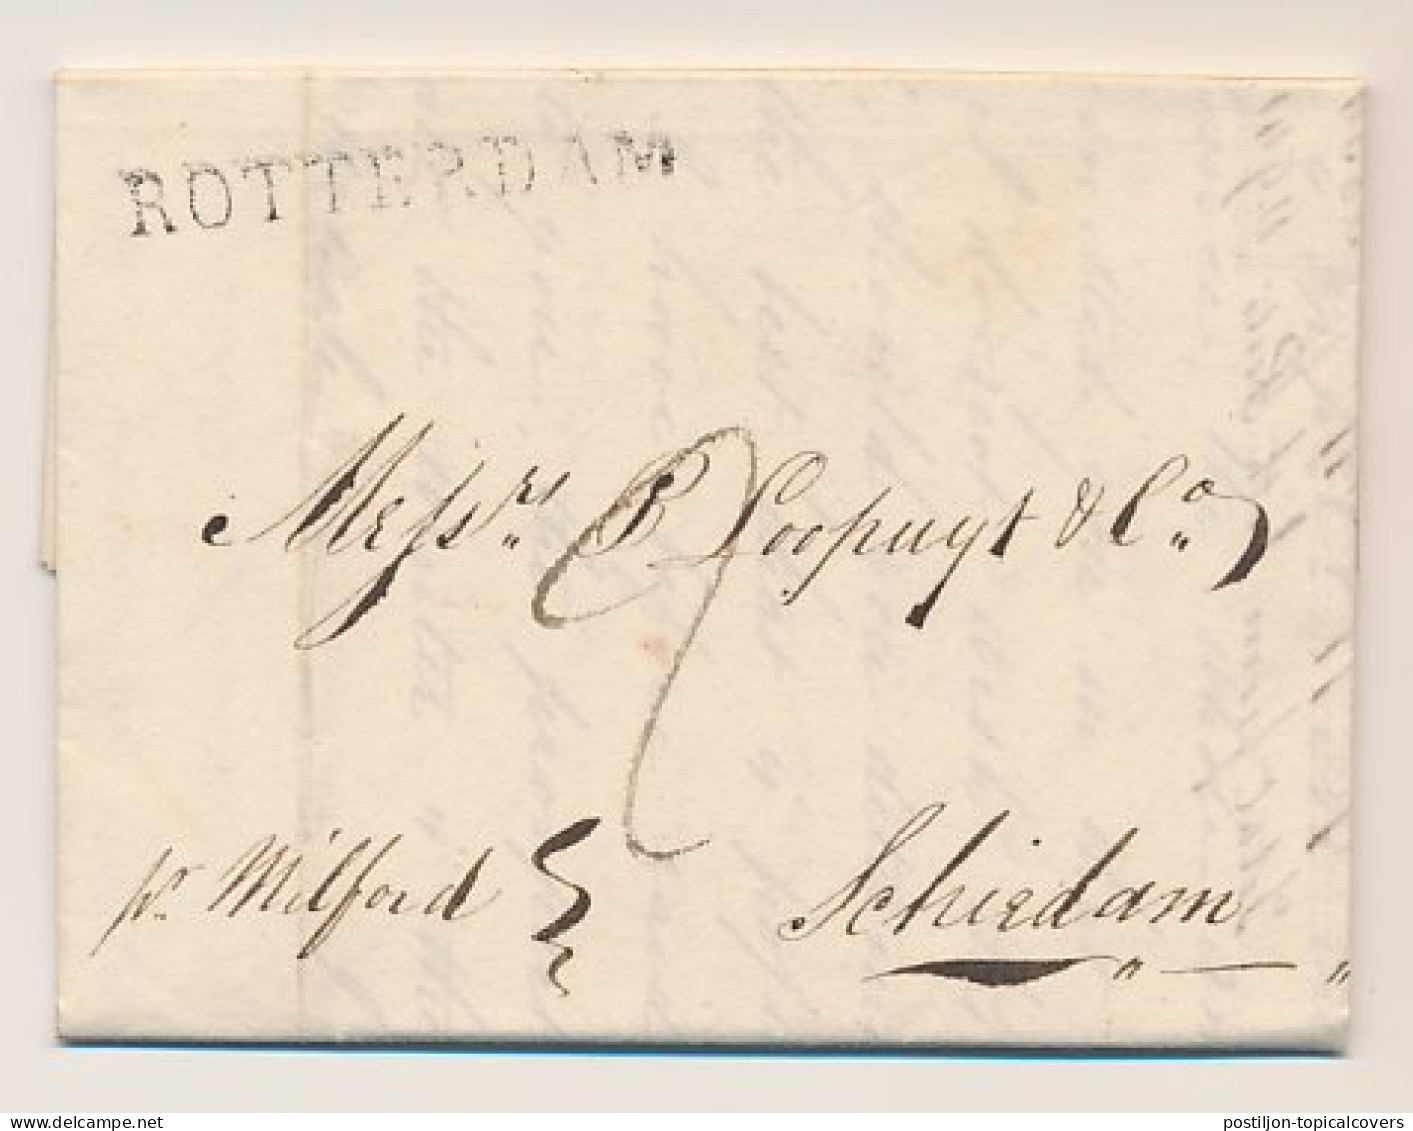 ROTTERDAM
Messrs. B Loopuyt & Co.
pr. Milford
Schiedam
www.delcampe.net
postiljon-topicalcovers